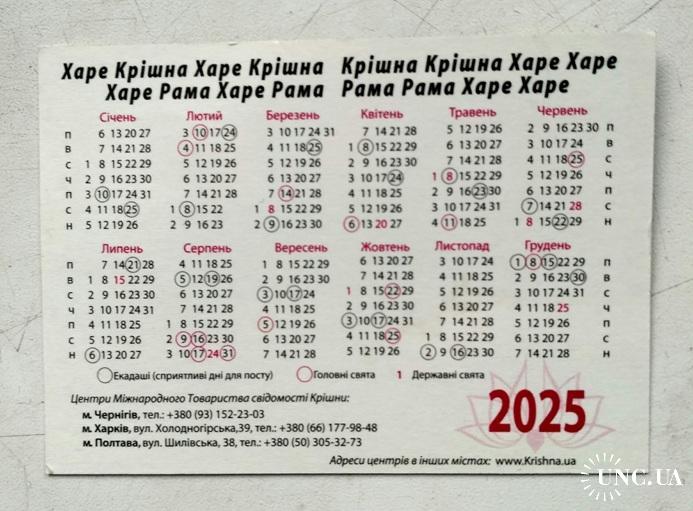 Харе Крішна Харе Крішна Крішна Крішна Харе Харе
Харе Рама Харе Рама Рама Рама Харе Харе
Січень Лютий Березень Квітень Травень Червень
П 6 13 20 27 3 10 17 24 3 10 17 24 31 7 14 21 28 5 12 19 26 2 9 16 23 30 П
В 7 14 21 28 4 11 18 25 4 11 18 25 1 8 15 22 29 6 13 20 27 3 10 17 24 В
С 1 8 15 22 29 5 12 19 26 5 12 19 26 2 9 16 23 30 7 14 21 28 4 11 18 25 С
Ч 2 9 16 23 30 6 13 20 27 6 13 20 27 3 10 17 24 1 8 15 22 29 5 12 19 26 Ч
П 3 10 17 24 31 7 14 21 28 7 14 21 28 4 11 18 25 2 9 16 23 30 6 13 20 27 П
С 4 11 18 25 1 8 15 22 1 8 15 22 29 5 12 19 26 3 10 17 24 31 7 14 21 28 С
Н 5 12 19 26 2 9 16 23 2 9 16 23 30 6 13 20 27 4 11 18 25 1 8 15 22 29 Н
Липень Серпень Вересень Жовтень Листопад Грудень
П 7 14 21 28 4 11 18 25 1 8 15 22 29 6 13 20 27 3 10 17 24 1 8 15 22 29 П
В 1 8 15 22 29 5 12 19 26 2 9 16 23 30 7 14 21 28 4 11 18 25 2 9 16 23 30 В
С 2 9 16 23 30 6 13 20 27 3 10 17 24 1 8 15 22 29 5 12 19 26 3 10 17 24 31 С
Ч 3 10 17 24 31 7 14 21 28 4 11 18 25 2 9 16 23 30 6 13 20 27 4 11 18 25 Ч
П 4 11 18 25 1 8 15 22 29 5 12 19 26 3 10 17 24 31 7 14 21 28 5 12 19 26 П
С 5 12 19 26 2 9 16 23 30 6 13 20 27 4 11 18 25 1 8 15 22 29 6 13 20 27 С
Н 6 13 20 27 3 10 17 24 31 7 14 21 28 5 12 19 26 2 9 16 23 30 7 14 21 28 Н
Екадаші (сприятливі дні для посту) Головні свята 1 Державні свята
Центри Міжнародного Товариства свідомості Крішни:
м. Чернігів, тел.: +380 (93) 152-23-03
м. Харків, вул. Холодногірська,39, тел.: +380 (66) 177-98-48
м. Полтава, вул. Шилівська, 38, тел.: +380 (50) 305-32-73
2025
Адреси центрів в інших містах: www.Krishna.ua
UNC.UA